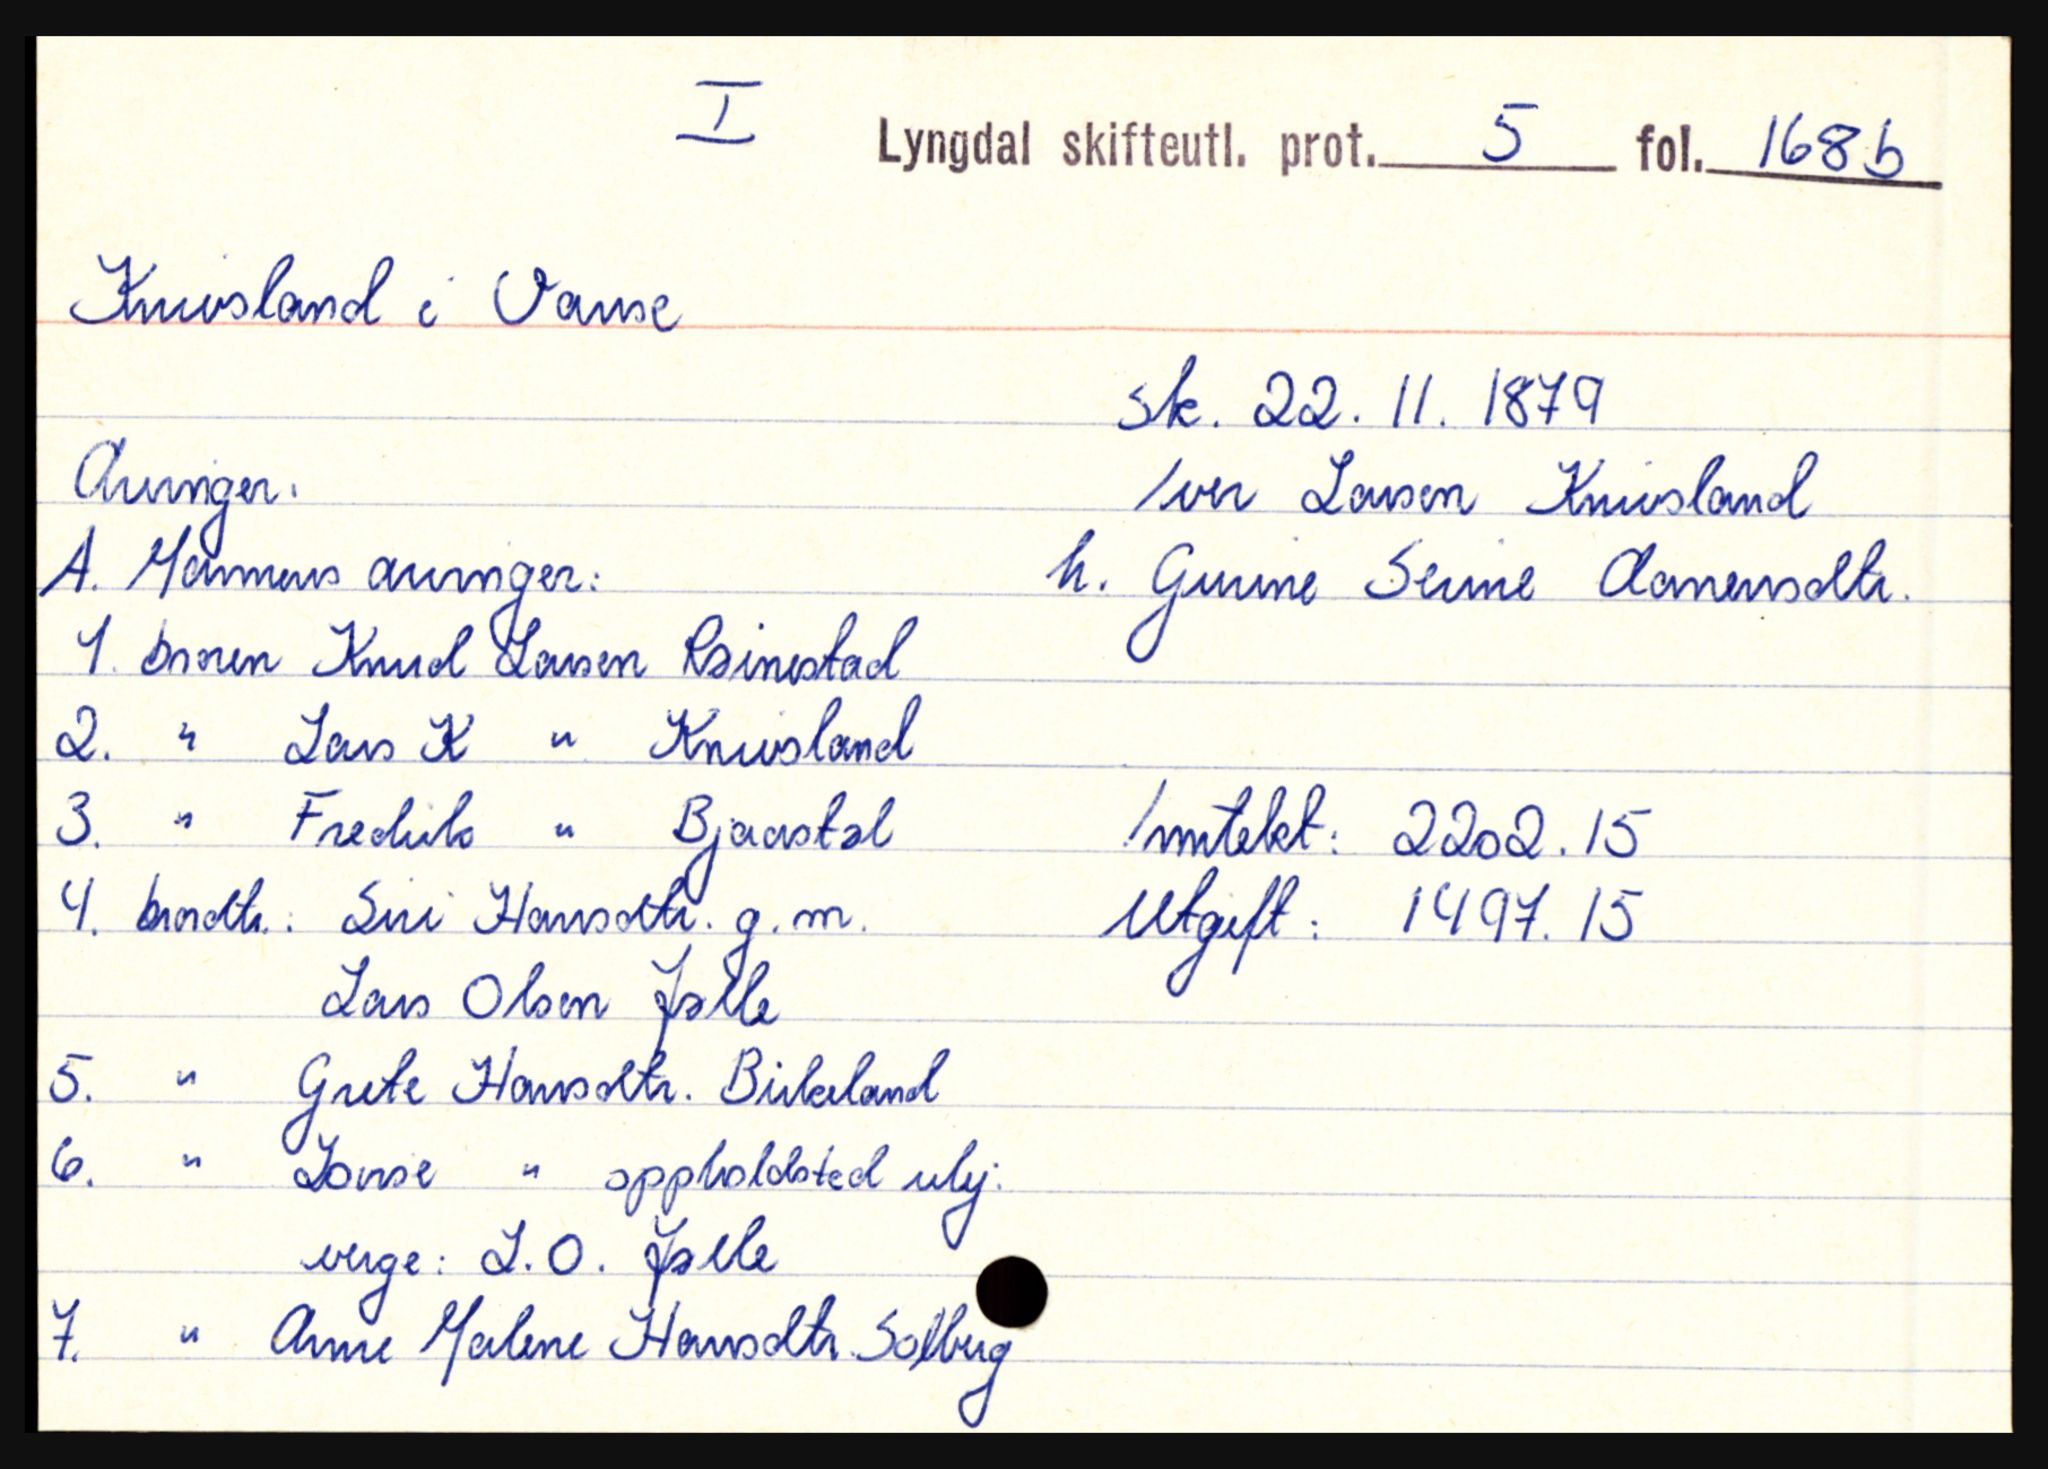 I
Lyngdal skifteutl. prot. 5 fol. 168b
Knivsland i Vanse
sk. 22. 11. 1879
Arvinger:
Iver Larsen Knivsland
A. Mannens arvinger:
h. Gurine Serine Aanensdtr.
1. broren Knud Larsen Reinestad
2. " Lars K " Knivsland
3. " Fredrik " Bjaastøl
Inntekt: 2202.15
4. brordtr.: Siri Hansdtr. g.m.
Utgift: 1497.15
Lars Olsen Jølle
5. " Grete Hansdtr. Birkeland
6. " Lovise " oppholdsted ukj.
verge: L.O. Jølle
7. " Anne Malene Hansdtr. Solberg